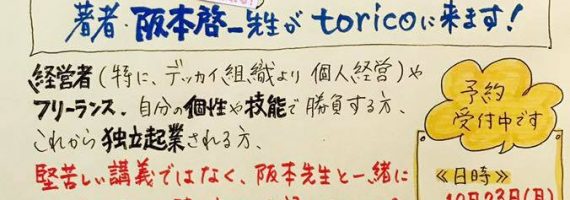 著者・阪本啓一先生がtoricoに来ます!
経営者(特に、デッカイ組織より個人経営)や
フリーランス、自分の個性や技能で勝負する方、
これから独立起業される方、
堅苦しい講義ではなく、阪本先生と一緒に
予約
受付中です
《日時》
10月23日(月)